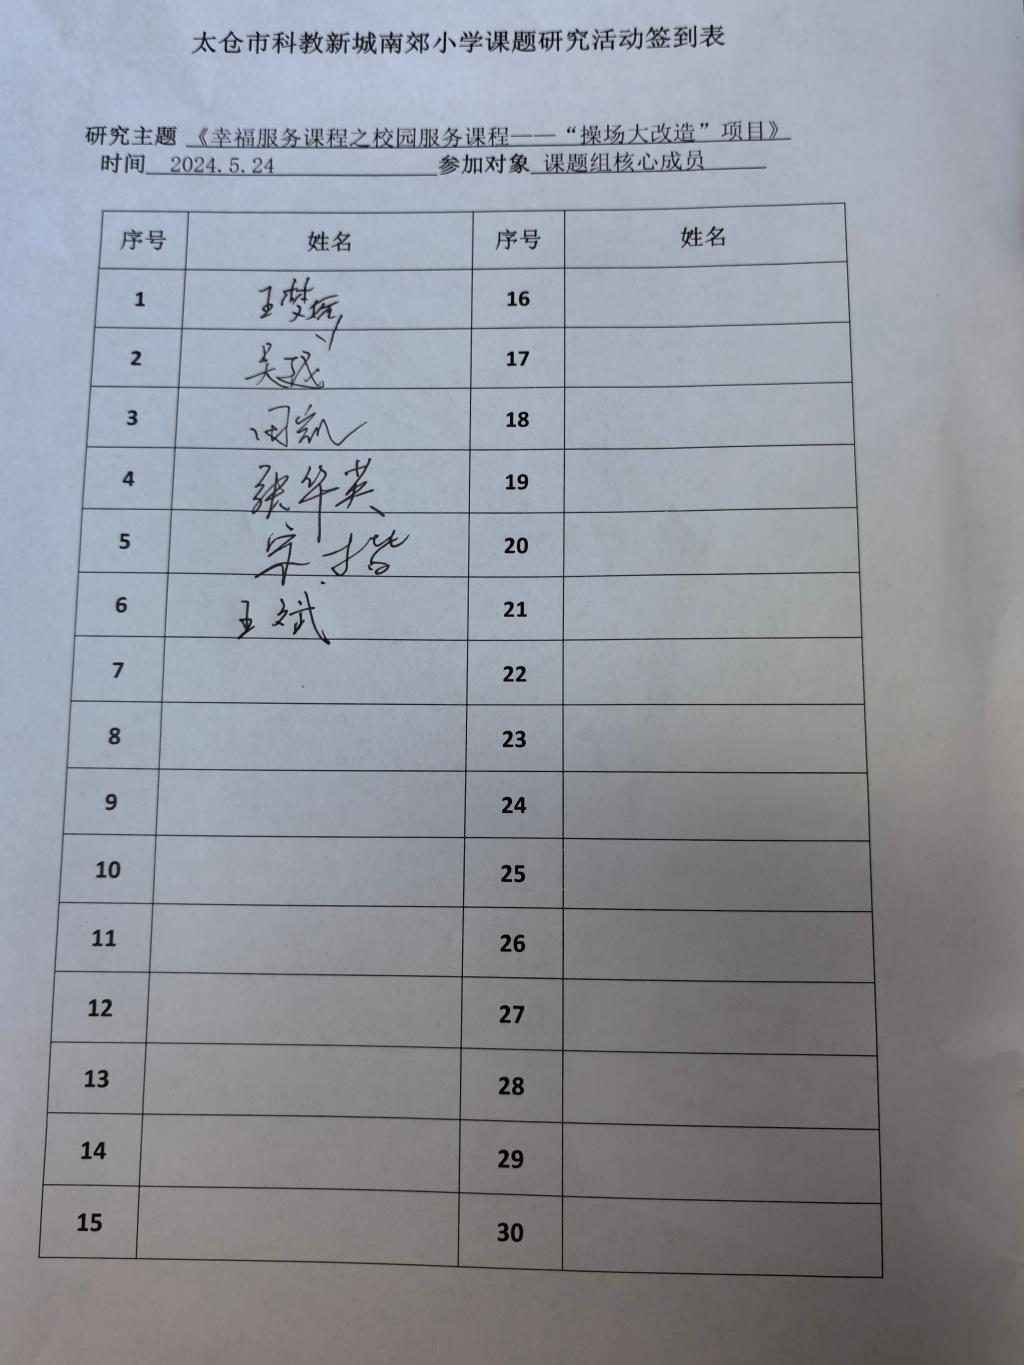 太仓市科教新城南郊小学课题研究活动签到表
研究主题 《幸福服务课程之校园服务课程——“操场大改造”项目》
时间 2024.5.24 参加对象 课题组核心成员
序号 姓名 序号 姓名
1 王梦 16
2 吴 17
3 凯 18
4 张华英 19
5 宋 20
6 王斌 21
7 22
8 23
9 24
10 25
11 26
12 27
13 28
14 29
15 30